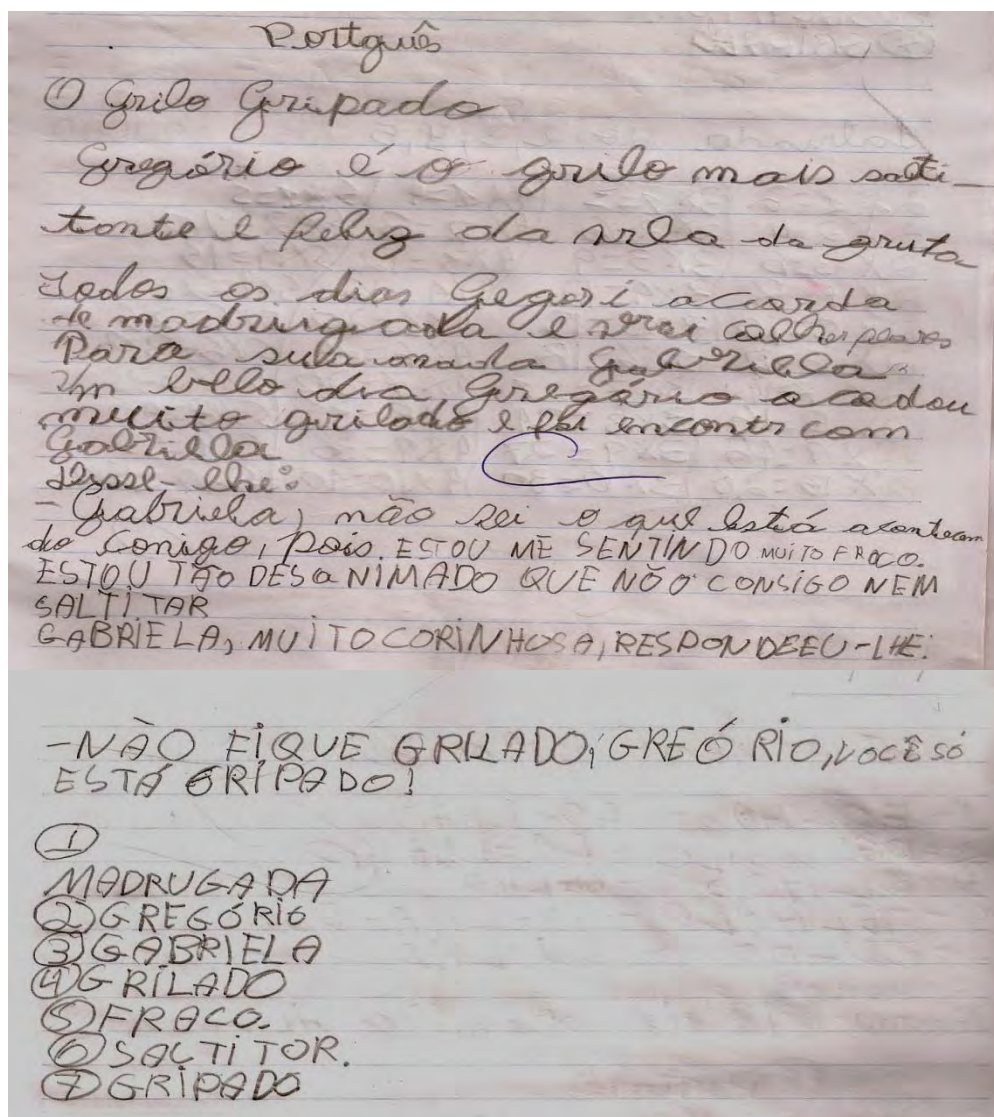 Portguês
O Grilo Gripado
Gregório é o grilo mais salti-
tonte e feliz da vila da gruta
Todos os dias Gegori acorda
de madruigada e vai colher
Para sua amada Gabriella
Um bello dia, Gregário acodou
muito grilado e foi encontr com
Gabriella
Disse-lhe:
- Gabriela, não sei o que está acontecem
do conigo, pois. ESTOU ME SENTINDO MUITO FRACO.
ESTOU TÃO DESANIMADO QUE NÕO CONSIGO NEM
SALTITAR
GABRIELA, MUITO CORINHOSA, RESPONDEEU-LHE:
-NÃO FIQUE GRILADO, GREÓRIO, VOCÊ SÓ
ESTÁ GRIPADO!
1
MADRUGADA
2 GREGÓRIO
3 GABRIELA
4 GRILADO
5 FRACO.
6 SALTITOR.
7 GRIPADO